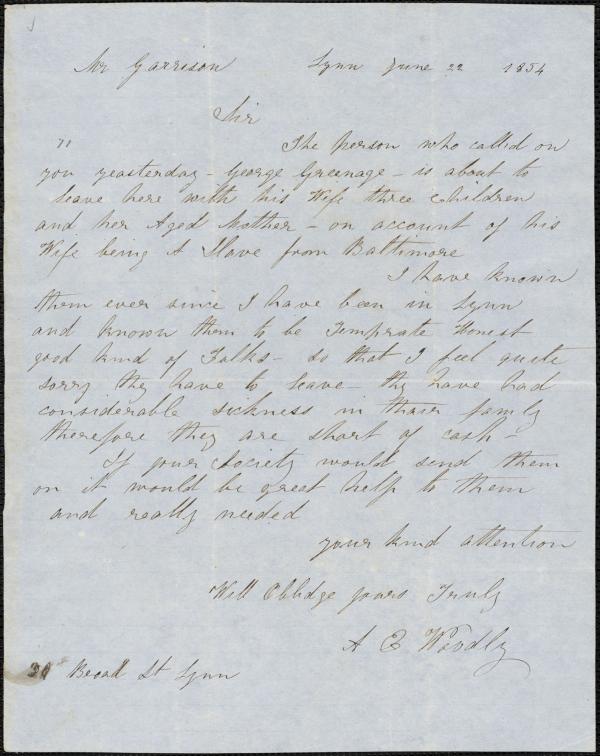 Mr Garrison Lynn June 22 1854
Sir
" The person who called on
you yeasterday - George Greenage - is about to
leave here with his Wife three Children
and her Aged Mother - on account of his
Wife being A Slave from Baltimore
I have known
them ever since I have been in Lynn
and known them to be Temprate Honest
good kind of Folks - so that I feel quite
sorry thy have to leave - thy have had
considerable sickness in thair family
therefore they are short of cash -
If your Society would send them
on it would be great help to them
and really needed
your kind attention
Will Oblidge yours Truly
A E Woodly
Broad St Lynn